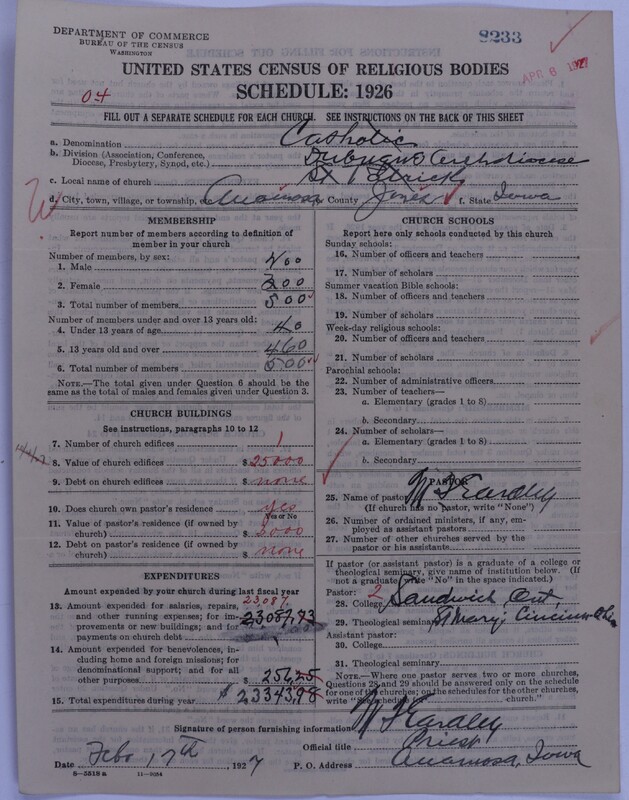 DEPARTMENT OF COMMERCE
BUREAU OF THE CENSUS
WASHINGTON
8233
APR 8 1927
UNITED STATES CENSUS OF RELIGIOUS BODIES
SCHEDULE: 1926
04
FILL OUT A SEPARATE SCHEDULE FOR EACH CHURCH. SEE INSTRUCTIONS ON THE BACK OF THIS SHEET
a. Denomination Catholic
b. Division (Association, Conference, Diocese, Presbytery, Synod, etc.) Dubuque Archdiocese
c. Local name of church St Patrick
d. City, town, village, or township, etc. Anamosa County Jones f. State Iowa
MEMBERSHIP
Report number of members according to definition of member in your church
Number of members, by sex:
1. Male 200
2. Female 300
3. Total number of members 500
Number of members under and over 13 years old:
4. Under 13 years of age 40
5. 13 years old and over 460
6. Total number of members 500
NOTE.—The total given under Question 6 should be the same as the total of males and females given under Question 3.
CHURCH BUILDINGS
See instructions, paragraphs 10 to 12
7. Number of church edifices 1
8. Value of church edifices $ 25000
9. Debt on church edifices $ none
10. Does church own pastor's residence? yes
Yes or No
11. Value of pastor's residence (if owned by church) $ 5000
12. Debt on pastor's residence (if owned by church) $ none
EXPENDITURES
Amount expended by your church during last fiscal year
23087
13. Amount expended for salaries, repairs, and other running expenses; for improvements or new buildings; and for payments on church debt 23087,73
14. Amount expended for benevolences, including home and foreign missions; for denominational support; and for all other purposes $ 256,25
15. Total expenditures during year $ 23343,98
CHURCH SCHOOLS
Report here only schools conducted by this church
Sunday schools:
16. Number of officers and teachers
17. Number of scholars
Summer vacation Bible schools:
18. Number of officers and teachers
19. Number of scholars
Week-day religious schools:
20. Number of officers and teachers
21. Number of scholars
Parochial schools:
22. Number of administrative officers
23. Number of teachers—
a. Elementary (grades 1 to 8)
b. Secondary
24. Number of scholars—
a. Elementary (grades 1 to 8)
b. Secondary
PASTOR
25. Name of pastor
(If church has no pastor, write "None")
26. Number of ordained ministers, if any, employed as assistant pastors
27. Number of other churches served by the pastor or his assistants
If pastor (or assistant pastor) is a graduate of a college or theological seminary, give name of institution below. (If not a graduate, write "No" in the space indicated.)
Pastor: 2
28. College Sandwich, Ont.
29. Theological seminary St Mary, Cincin Ohio
Assistant pastor:
30. College
31. Theological seminary
NOTE.—Where one pastor serves two or more churches, Questions 28 and 29 should be answered only on the schedule for one of the churches; on the schedules for the other churches, write "See schedule church."
Signature of person furnishing information
Official title Priest
Date Feb. 17th, 1927 P. O. Address Anamosa, Iowa
8—5518a 11—9084